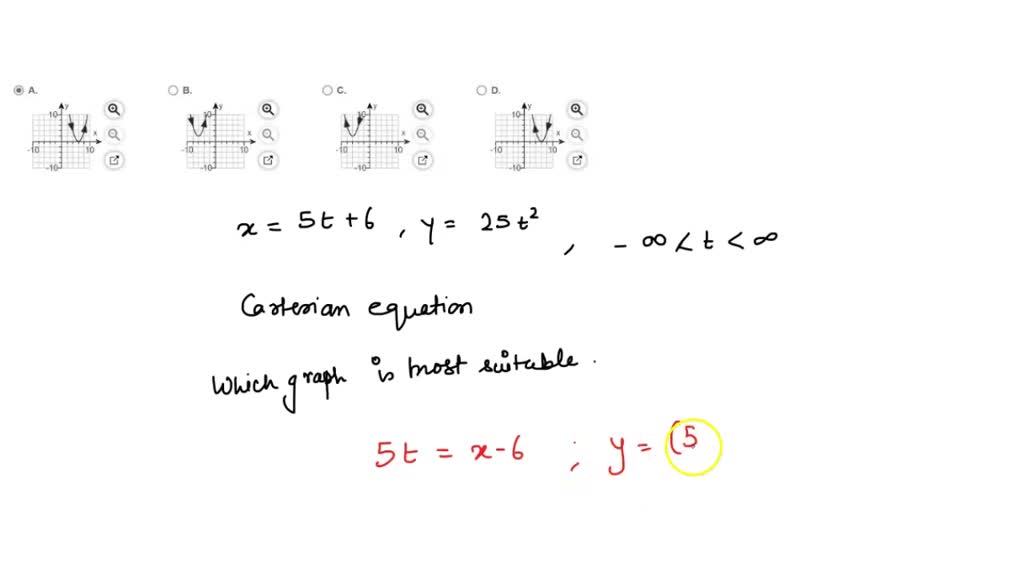 A. B. C. D.
10 y x -10 10 -10
10 y x -10 10 -10
10 y x -10 10 -10
10 y x -10 10 -10
x = 5t + 6 , y = 25t² , - ∞ < t < ∞
Cartesian equation
Which graph is most suitable .
5t = x - 6 ; y = (5